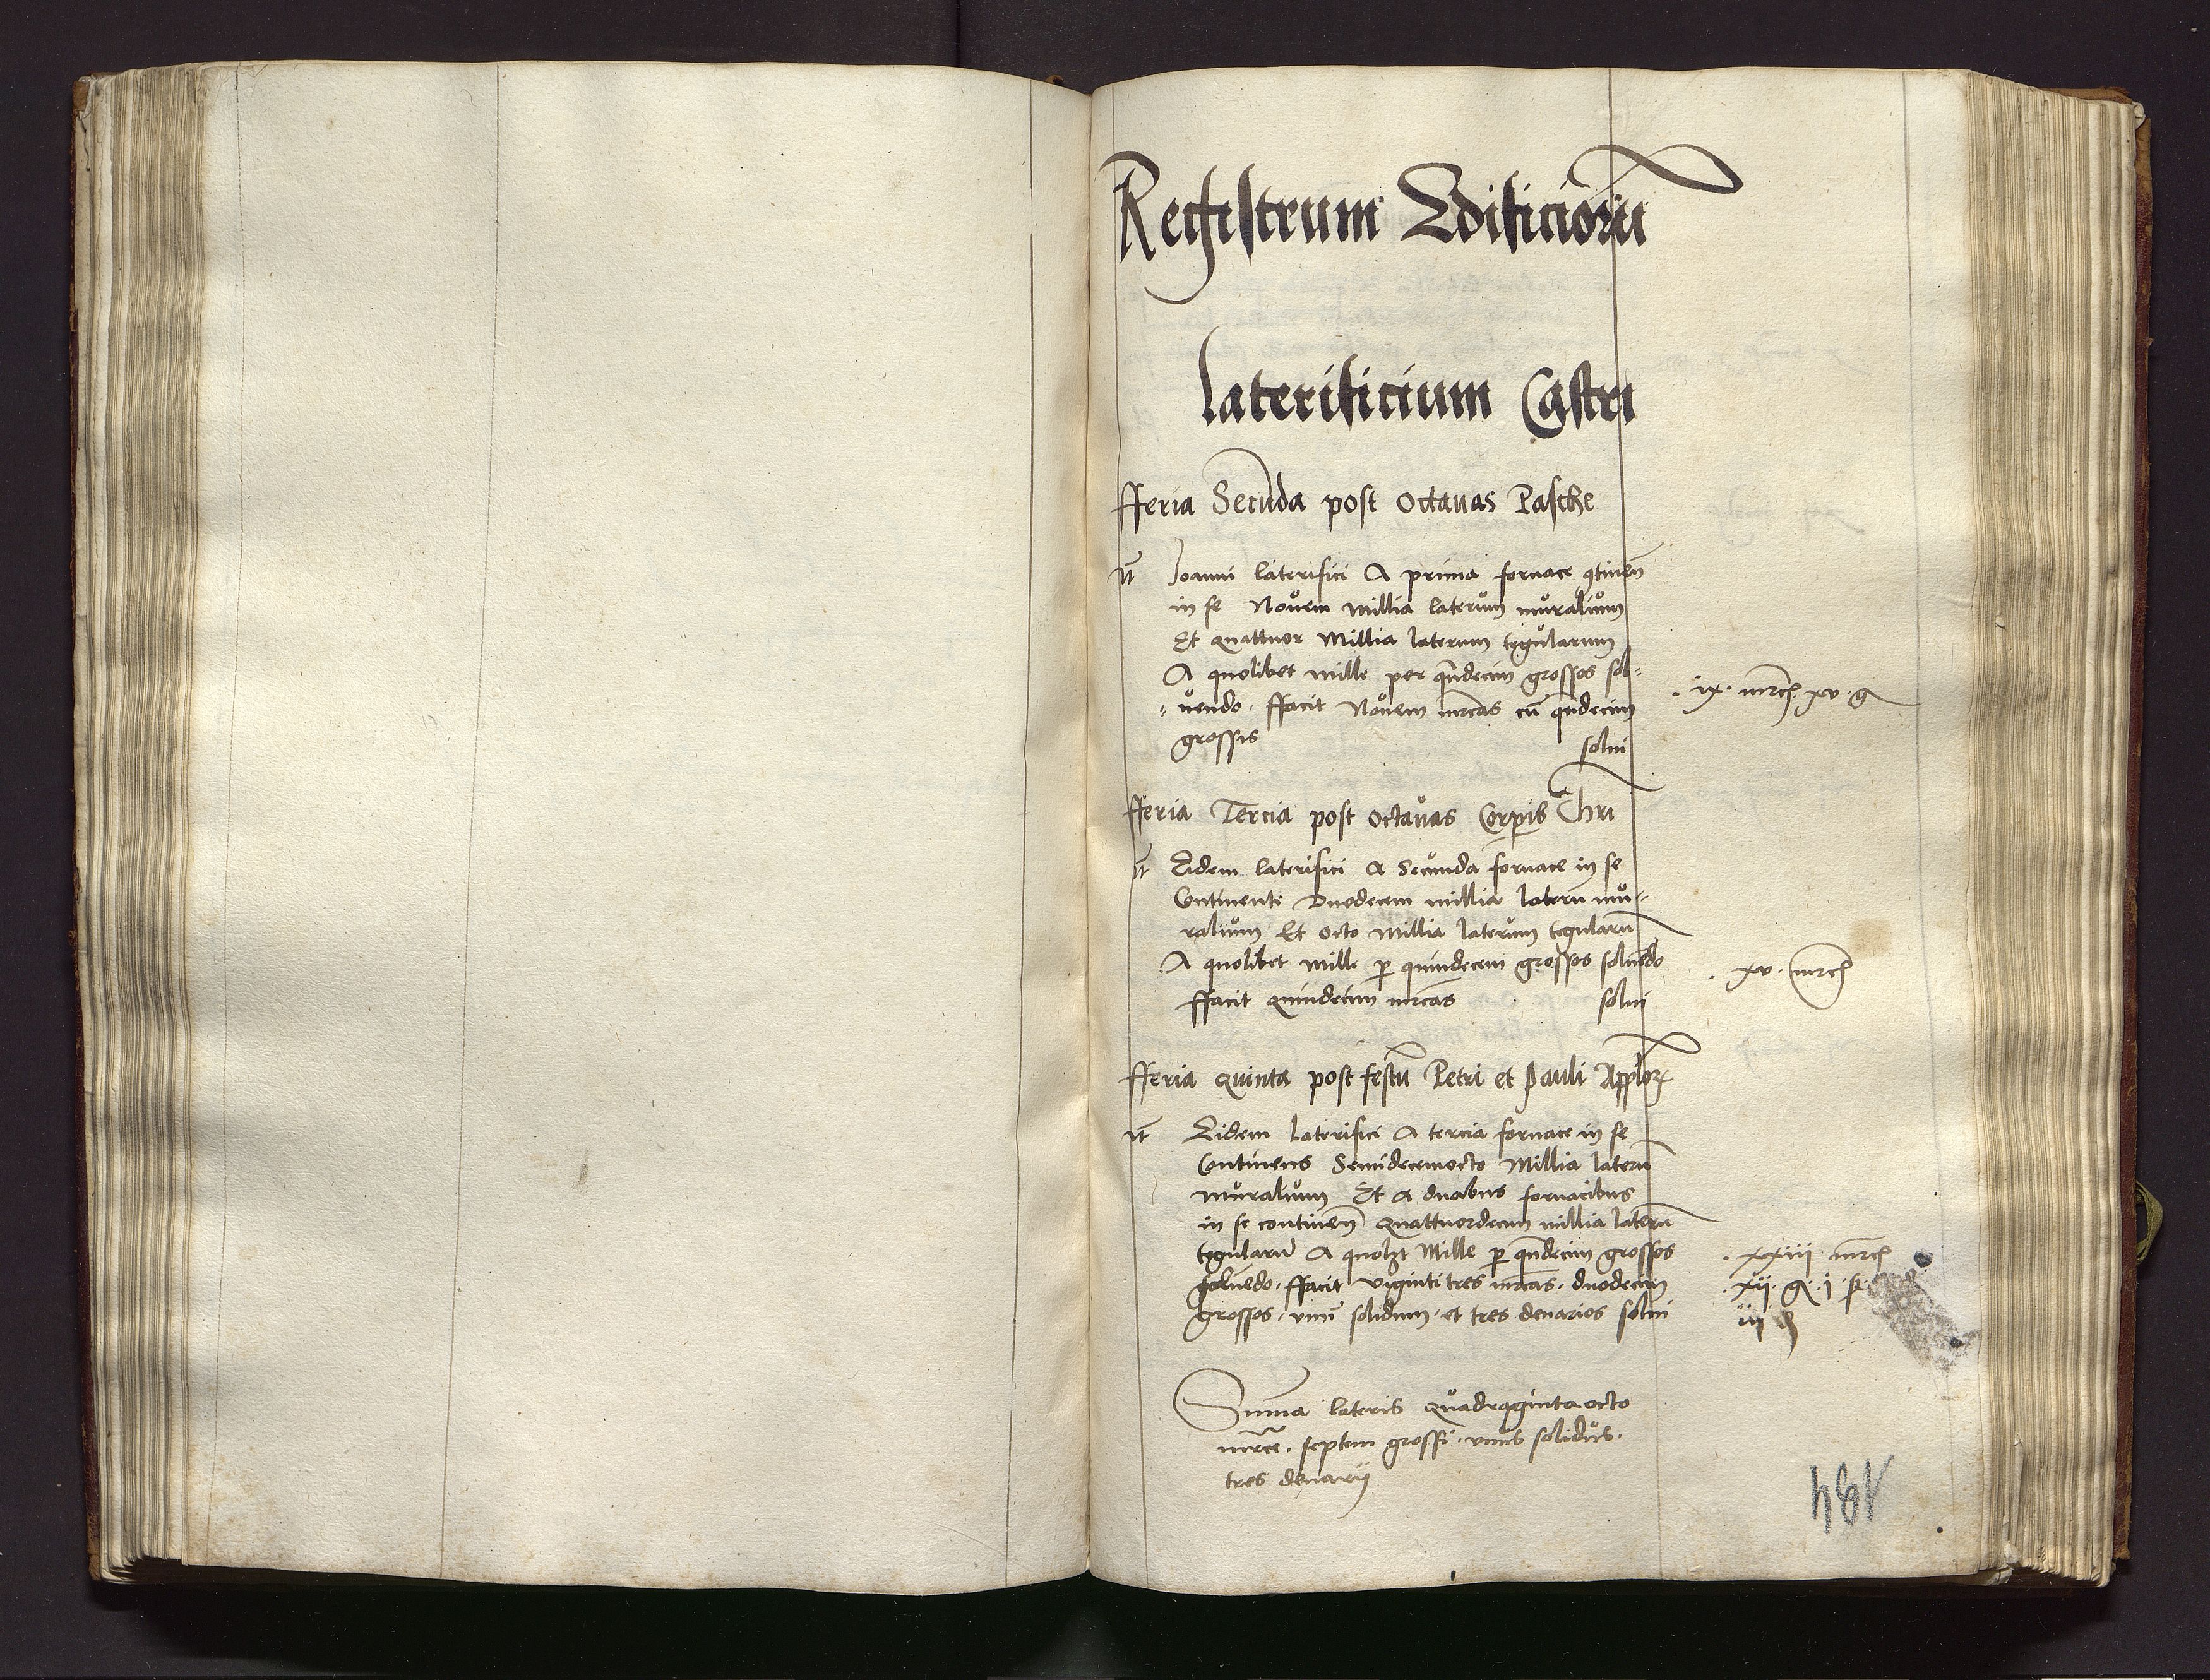 Registrum Edificioru
laterificium Castri
fferia Secuda post octauas Pasche
It Joanni laterifici A prima fornace qtinen
in se Nouem millia laterum muralium
Et quattuor Millia laterum tegularum
A quolibet mille per qndecim grossos sol-
-uendo. ffacit Nouem mrcas cu qndecim
grossis solui
.ix. mrc xv. g
fferia Tercia post octauas Corpis Chri
It Eidem laterifici A Secunda fornace in se
Continenti Duodecem millia lateru mu-
ralium Et octo millia laterum tegularu
A quolibet mille p quindecem grossos soluedo
ffacit quindecim mrcas solui
. xv. mrc
fferia quinta post festu Petri et Pauli Applor
It Eidem laterifici A tercia fornace in se
Continens Semidecemocto Millia lateru
muralium Et a duabus fornacibus
in se continen quattuordecim millia lateru
tegularu A quolzt Mille p qndecim grossos
soluedo. ffacit viginti tres mrcas. duodecim
grossos. vnu solidum. et tres denarios solui
. xxiii mrc
. xii. g. i ß.
iii d
Suma lateris quadraginta octo
mrce. septem grossi. vnus solidus.
tres denarij
184